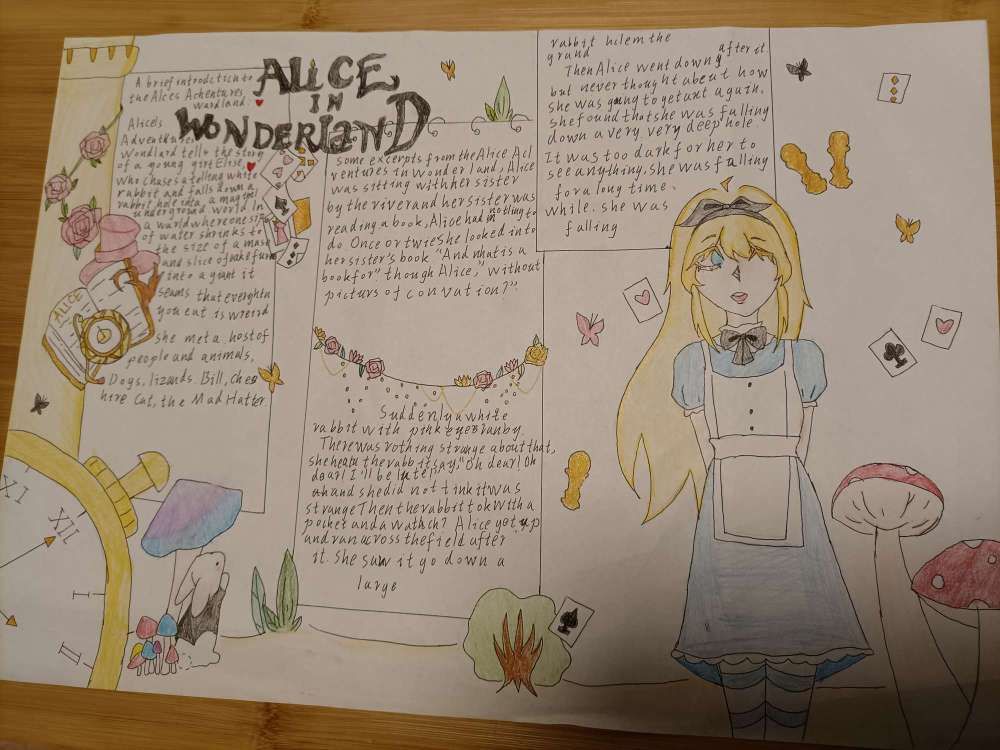 ALiCE
IN
WONDERLanD
A brief introdction to
the Alces Achentures
wardland.
Alice's
Adventures
Wondlard tell the story
of a young girl
who chuses a telling white
rabbit and falls down a
rabbit hole inta, a magical
underground world In
a warld where one sip
of water shrinks to
the size of a mast
and slice of cake turn
into a giant it
seams that everghtn
you eat is wreird
she met a host of
people and animals,
Doys, lizards. Bill, ches
hire Cat, the Mad Hatter.
ALICE
some excerpts from the Alice Ad
ventures in wonderland, Alice
was sitting with her sister
by the river and her sister was
reading a book, Alice had notling to
do. Once or twie She looked into
her sister's book "And what is a
book for" though Alice," without
picturs of convation?"
Suddenly a white
rabbit with pink eyes ran by.
There was nothing strange about that,
she heard the rabbit say, "Oh dear! Oh
dear! I'll be late!!
and she did not tink it was
strange Then the rabbit tok with a
pocket and a wathch? Alice got up
and ran across the field after
it. She saw it go down a
large
rabbit hole in the
grand
Then Alice went down after it.
but never thought about how
she was going to get aut again.
she found that she was falling
down a very very deep hole.
It was too dark for her to
see anything. she was falling
for a long time.
while. she was
falling
XI
XII
I
II